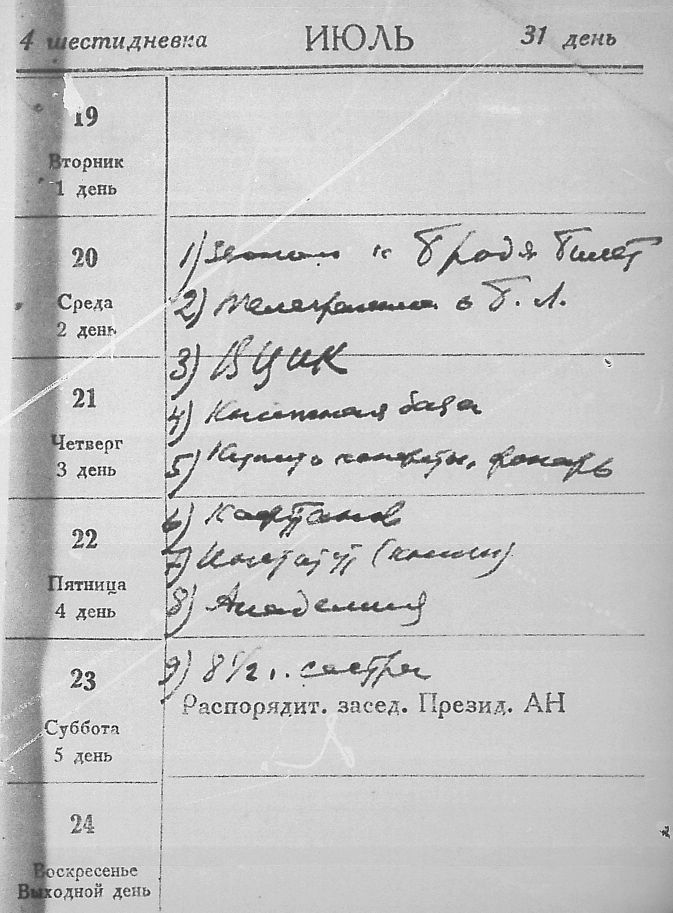 4 шестидневка ИЮЛЬ 31 день
19
Вторник
1 день
20
Среда
2 день
1) к билет
2) Телеграмма в Б. Л.
3) ВЦИК
21
Четверг
3 день
4) Книжная база
5) Купить конверты, фонарь
22
Пятница
4 день
6) Кафтанов
7) Институт (книги)
8) Академия
23
Суббота
5 день
9) 8 1/2 . сестра
Распорядит. засед. Презид. АН
24
Воскресенье
Выходной день